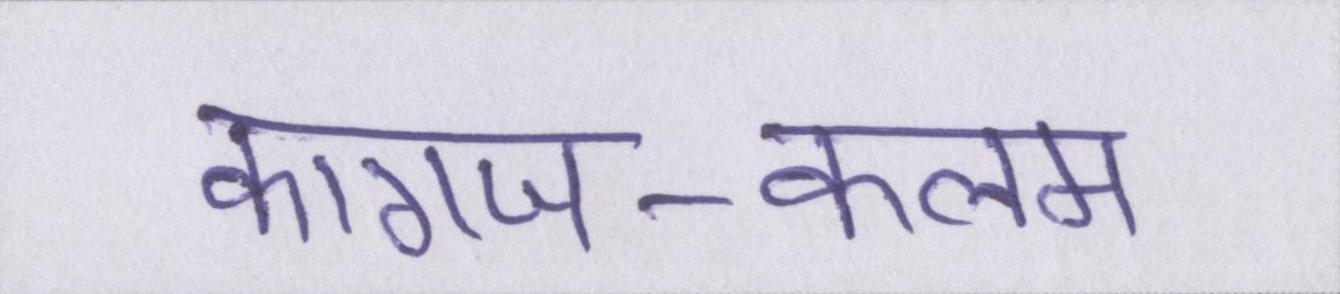 कागज-कलम